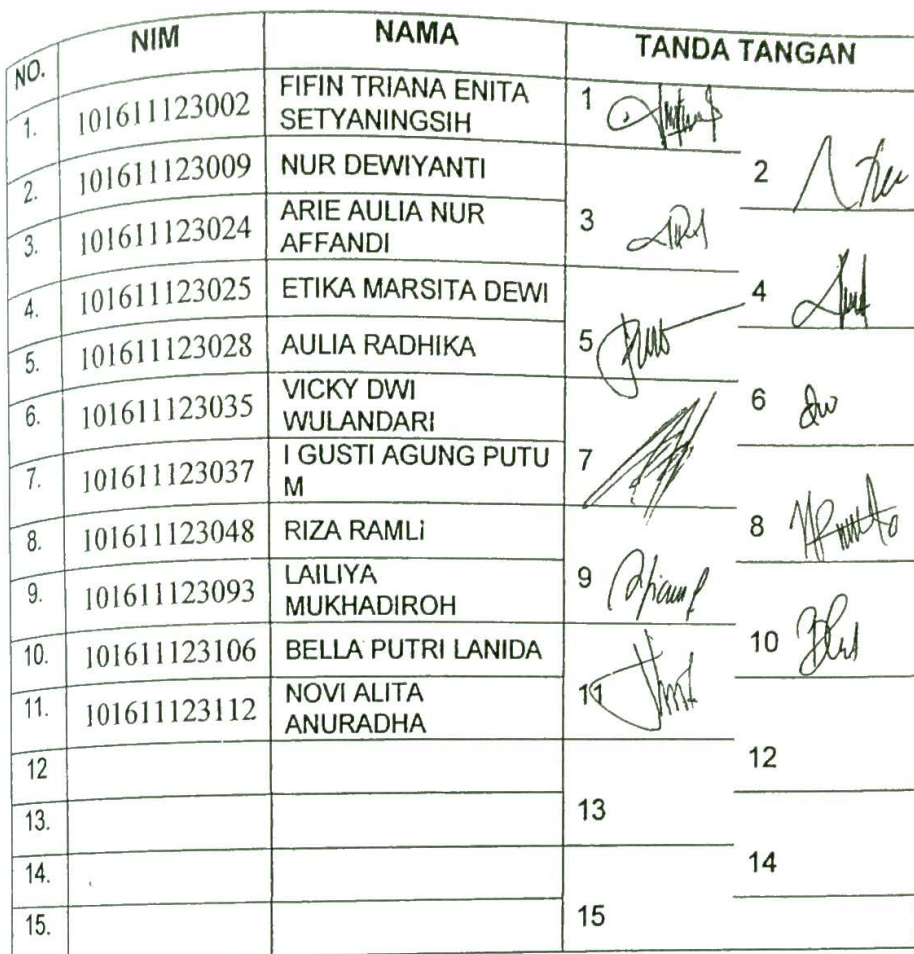 NO. NIM NAMA TANDA TANGAN
1. 101611123002 FIFIN TRIANA ENITA 1
SETYANINGSIH
2. 101611123009 NUR DEWIYANTI 2
3. 101611123024 ARIE AULIA NUR 3
AFFANDI
4. 101611123025 ETIKA MARSITA DEWI 4
5. 101611123028 AULIA RADHIKA 5
6. 101611123035 VICKY DWI 6
WULANDARI
7. 101611123037 I GUSTI AGUNG PUTU 7
M
8. 101611123048 RIZA RAMLi 8
9. 101611123093 LAILIYA 9
MUKHADIROH
10. 101611123106 BELLA PUTRI LANIDA 10
11. 101611123112 NOVI ALITA 11
ANURADHA
12 12
13. 13
14. 14
15. 15